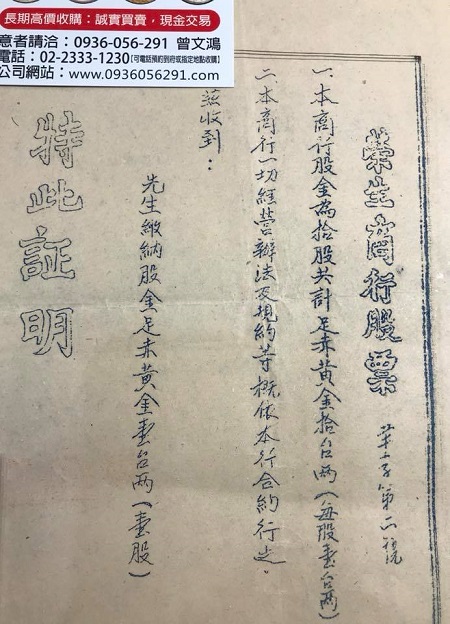 長期高價收購：誠實買賣，現金交易
意者請洽：0936-056-291 曾文鴻
電話：02-2333-1230【可電話預約到府或指定地點收購】
公司網站：www.0936056291.com
榮生商行股票
第二號
一、本商行股金為拾股共計足赤黃金拾台兩（每股壹台兩）
二、本商行一切經營辦法及規約等概依本行合約行之。
茲收到：
先生繳納股金足赤黃金壹台兩（壹股）
特此証明